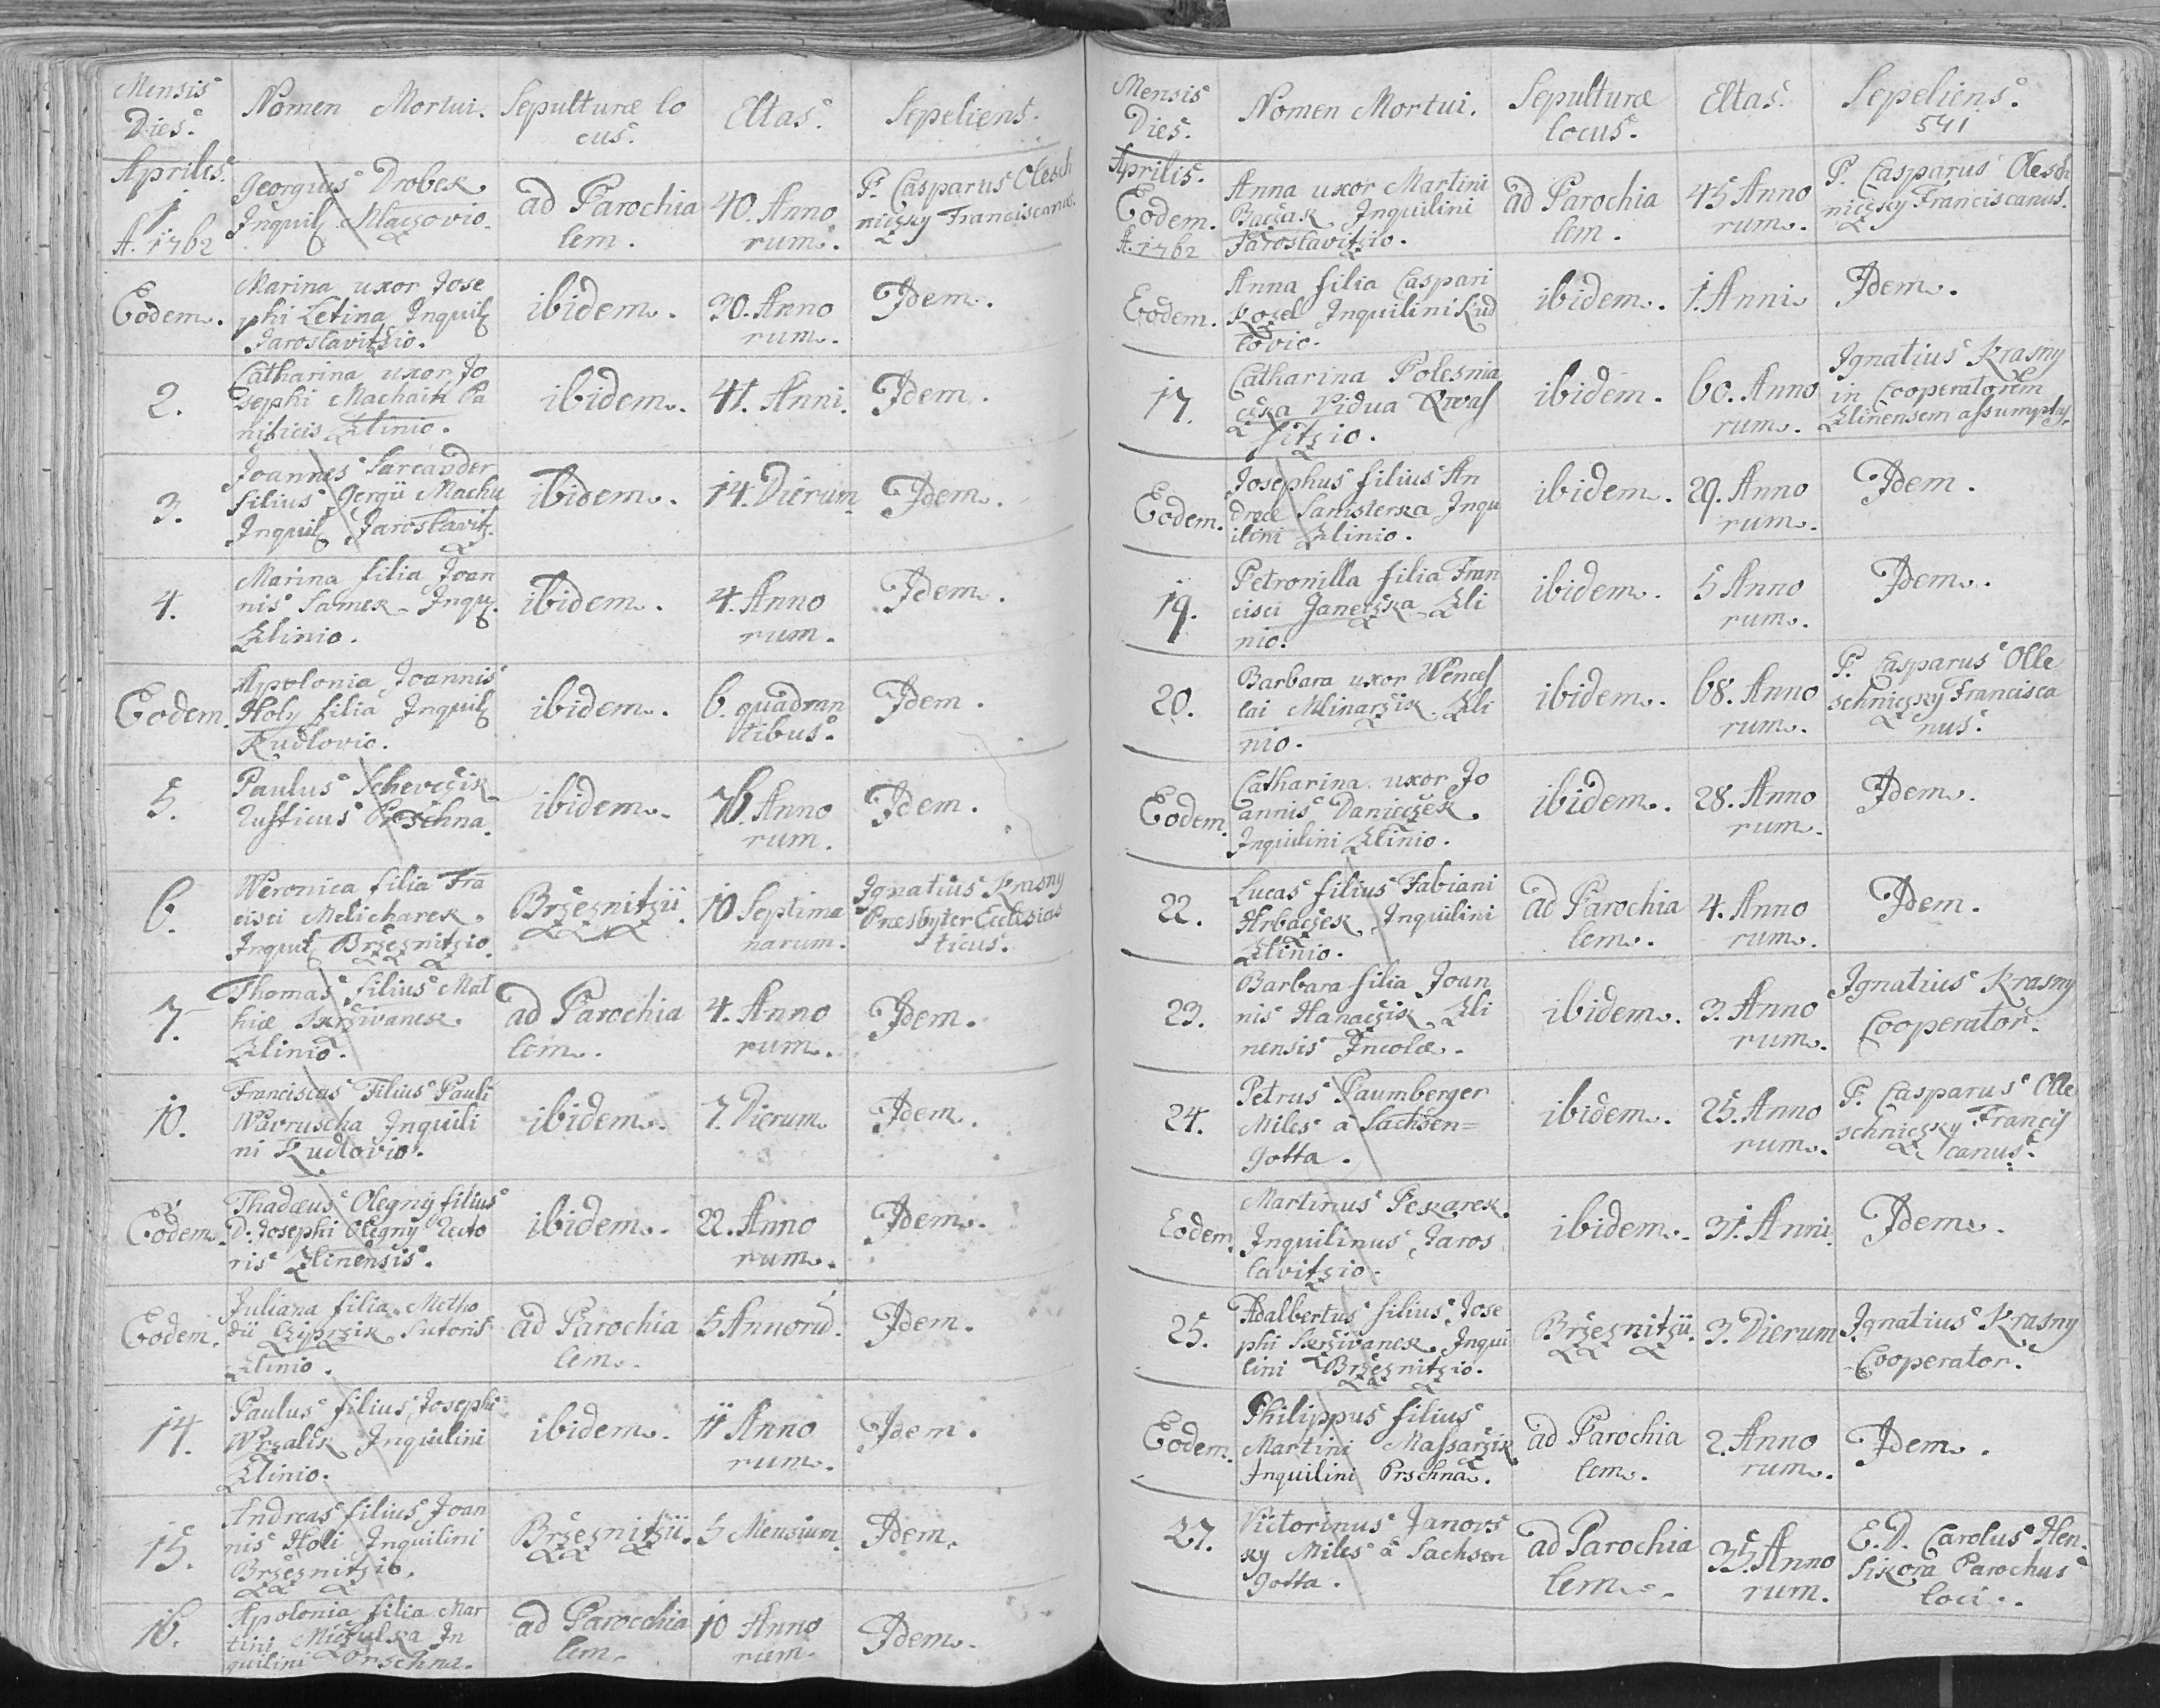 Mensis
Dies.
Nomen Mortui.
Sepulturæ lo
cus.
Ætas.
Sepeliens.
Aprilis.
1
A. 1762
Georgius Drobek
Inquil Mlaczovio.
ad Parochia
lem.
40. Anno
rum.
P. Casparus Olesch
niczky Franciscanus.
Eodem.
Marina uxor Jose
phi Letina Inquil
Jaroslavitzio.
ibidem.
30. Anno
rum.
Idem.
2.
Catharina uxor Jo
sephi Machaith Pa
nificis Zlinio.
ibidem.
41. Anni.
Idem.
3.
Joannes Sarcander
filius Gergii Machu
Inquil Jaroslavitz.
ibidem.
14. Dierum
Idem.
4.
Marina filia Joan
nis Samek Inqu.
Zlinio.
ibidem.
4. Anno
rum.
Idem.
Eodem.
Appolonia Joannis
Holy filia Inquil
Kudlovio.
ibidem.
6. quadran
tibus.
Idem.
5.
Paulus Schevczik
Rusticus Prschna.
ibidem.
76. Anno
rum.
Idem.
6.
Weronica filia Fra
cisci Melicharek
Inquil Brzeznitzio.
Brzeznitzii.
10 Septima
narum.
Ignatius Krasny
Præsbyter Ecclesias
ticus.
7.
Thomas filius Mat
hiæ Skrzivanek
Zlinio.
ad Parochia
lem.
4. Anno
rum.
Idem.
10.
Franciscus Filius Pauli
Wavruscha Inquili
ni Kudlovio.
ibidem.
7. Dierum
Idem.
Eodem.
Thadæus Olegny filius
D. Josephi Olegny Recto
ris Zlinensis.
ibidem.
22. Anno
rum.
Idem.
Eodem.
Juliana filia Metho
dii Cziprzik Sutoris
Zlinio.
ad Parochia
lem.
5 Annoru.
Idem.
14.
Paulus filius Josephi
Wrzalik Inquilini
Zlinio.
ibidem.
11 Anno
rum.
Idem.
15.
Andreas filius Joan
nis Holi Inquilini
Brzeznitzio.
Brzeznitzii.
5 Mensium.
Idem.
16.
Apolonia filia Mar
tini Miczulka In
quilini Prschna.
ad Parocchia
lem.
10 Anno
rum.
Idem.
Mensis
Dies.
Nomen Mortui.
Sepulturæ
locus.
Ætas.
Sepeliens.
541
Aprilis.
Eodem.
A. 1762
Anna uxor Martini
Baczak Inquilini
Jaroslavitzio.
ad Parochia
lem.
45 Anno
rum.
P. Casparus Olesch
niczky Franciscanus.
Eodem.
Anna filia Caspari
Kozel Inquilini Kud
lovio.
ibidem.
1. Anni
Idem.
17.
Catharina Polesnia
czka Vidua Kwas
sitzio.
ibidem.
60. Anno
rum.
Ignatius Krasny
in Cooperatorem
Zlinensem assumptus.
Eodem.
Josephus filius An
dreæ Sanisterka Inqu
ilini Zlinio.
ibidem.
29. Anno
rum.
Idem.
19.
Petronilla filia Fran
cisci Janeczka Zli
nio.
ibidem.
5 Anno
rum.
Idem.
20.
Barbara uxor Wences
lai Mlinarzik Zli
nio.
ibidem.
68. Anno
rum.
P. Casparus Olle
schniczky Francisca
nus.
Eodem.
Catharina uxor Jo
annis Daniczek
Inquilini Zlinio.
ibidem.
28. Anno
rum.
Idem.
22.
Lucas filius Fabiani
Hrbaczek Inquilini
Zlinio.
ad Parochia
lem.
4. Anno
rum.
Idem.
23.
Barbara filia Joan
nis Hanaczik Zli
nensis Incolæ.
ibidem.
3. Anno
rum.
Ignatius Krasny
Cooperator.
24.
Petrus Paumberger
Miles a Sachsen=
Gotta.
ibidem.
25. Anno
rum.
P. Casparus Olle
schniczky Francis
canus.
Eodem.
Martinus Pekarek
Inquilinus Jaros
lavitzio.
ibidem.
31. Anni.
Idem.
25.
Adalbertus filius Jose
phi Skrzivanek Inqui
lini Brzeznitzio.
Brzeznitzii.
3. Dierum
Ignatius Krasny
Cooperator.
Eodem.
Philippus filius
Martini Massarzik
Inquilini Prschna.
ad Parochia
lem.
2. Anno
rum.
Idem.
27.
Victorinus Janovs
ky Miles a Sachsen
Gotta.
ad Parochia
lem.
35. Anno
rum.
E. D. Carolus Hen.
Sikora Parochus
loci.